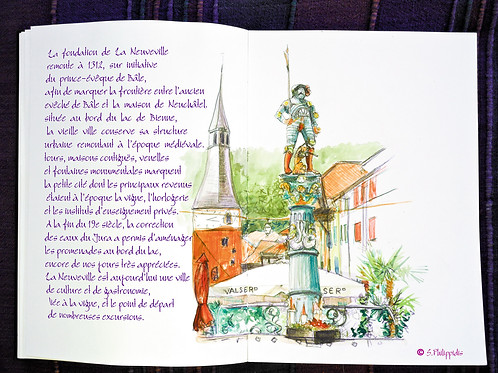 La fondation de La Neuveville
remonte à 1312, sur initiative
du prince-évêque de Bâle,
afin de marquer la frontière entre l'ancien
evêché de Bâle et la maison de Neuchâtel.
située au bord du lac de Bienne,
la vieille ville conserve sa structure
urbaine remontant à l'époque médiévale.
tours, maisons contigües, venelles
et fontaines monumentales marquent
la petite cité dont les principaux revenus
étaient à l'époque la vigne, l'horlogerie
et les instituts d'enseignement privés.
A la fin du 19e siècle, la correction
des eaux du Jura a permis d'aménager
les promenades au bord du lac,
encore de nos jours très appréciées.
La Neuveville est aujourd'hui une ville
de culture et de gastronomie,
liée à la vigne, et le point de départ
de nombreuses excursions.
VALSER
SER
© S.Philippidis